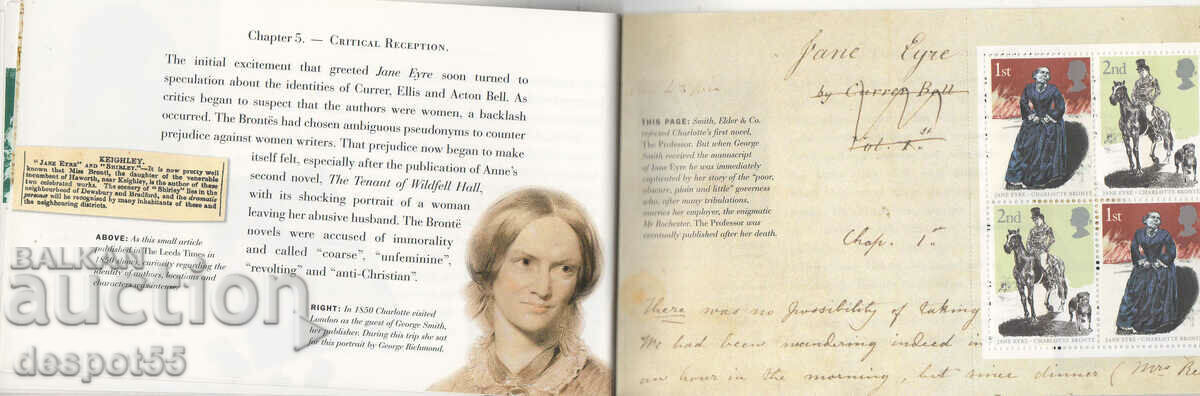 Chapter 5. — CRITICAL RECEPTION.
The initial excitement that greeted Jane Eyre soon turned to
speculation about the identities of Currer, Ellis and Acton Bell. As
critics began to suspect that the authors were women, a backlash
occurred. The Brontës had chosen ambiguous pseudonyms to counter
prejudice against women writers. That prejudice now began to make
itself felt, especially after the publication of Anne's
second novel, The Tenant of Wildfell Hall,
with its shocking portrait of a woman
leaving her abusive husband. The Brontë
novels were accused of immorality
and called "coarse", "unfeminine",
"revolting" and "anti-Christian".
KEIGHLEY.
"JANE EYRE" AND "SHIRLEY."—It is now pretty well
known that Miss Brontë, the daughter of the venerable
incumbent of Haworth, near Keighley, is the author of these
two celebrated works. The scenery of "Shirley" lies in the
neighbourhood of Dewsbury and Bradford, and the dramatis
personæ will be recognised by many inhabitants of these and
the neighbouring districts.
ABOVE: As this small article
published in The Leeds Times in
1850 shows, curiosity regarding the
identity of authors, locations and
characters was intense.
RIGHT: In 1850 Charlotte visited
London as the guest of George Smith,
her publisher. During this trip she sat
for this portrait by George Richmond.
BALKAN
auction
despot55
Jane Eyre
by Currer Bell
Vol. 1.st
THIS PAGE: Smith, Elder & Co.
rejected Charlotte's first novel,
The Professor. But when George
Smith received the manuscript
of Jane Eyre he was immediately
captivated by her story of the "poor,
obscure, plain and little" governess
who, after many tribulations,
marries her employer, the enigmatic
Mr Rochester. The Professor was
eventually published after her death.
Chap. 1.st
There was no possibility of taking
We had been wandering indeed in
an hour in the morning, but since dinner (Mrs Re
1st
2nd
JANE EYRE · CHARLOTTE BRONTË
JANE EYRE · CHARLOTTE BRONTË
2nd
1st
JANE EYRE · CHARLOTTE BRONTË
JANE EYRE · CHARLOTTE BRONTË